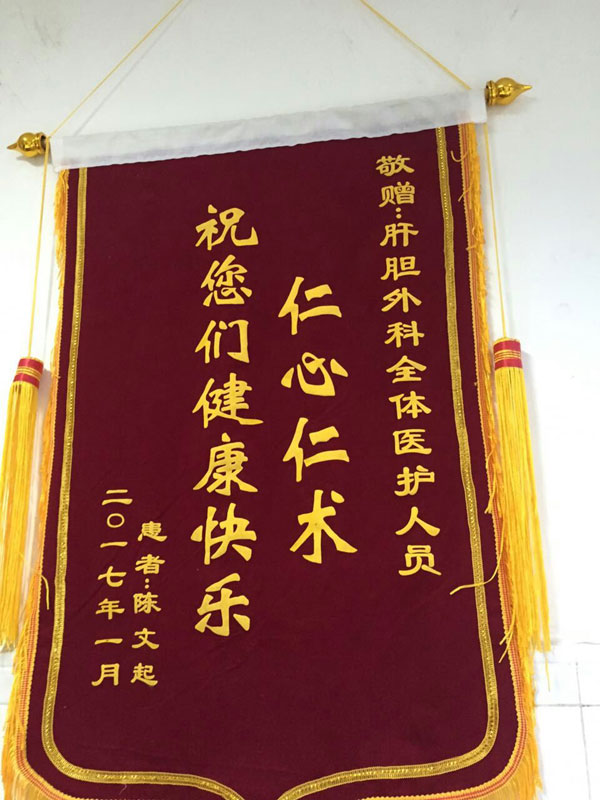 敬赠:肝胆外科全体医护人员
仁心仁术
祝您们健康快乐
患者:陈文起
二〇一七年一月